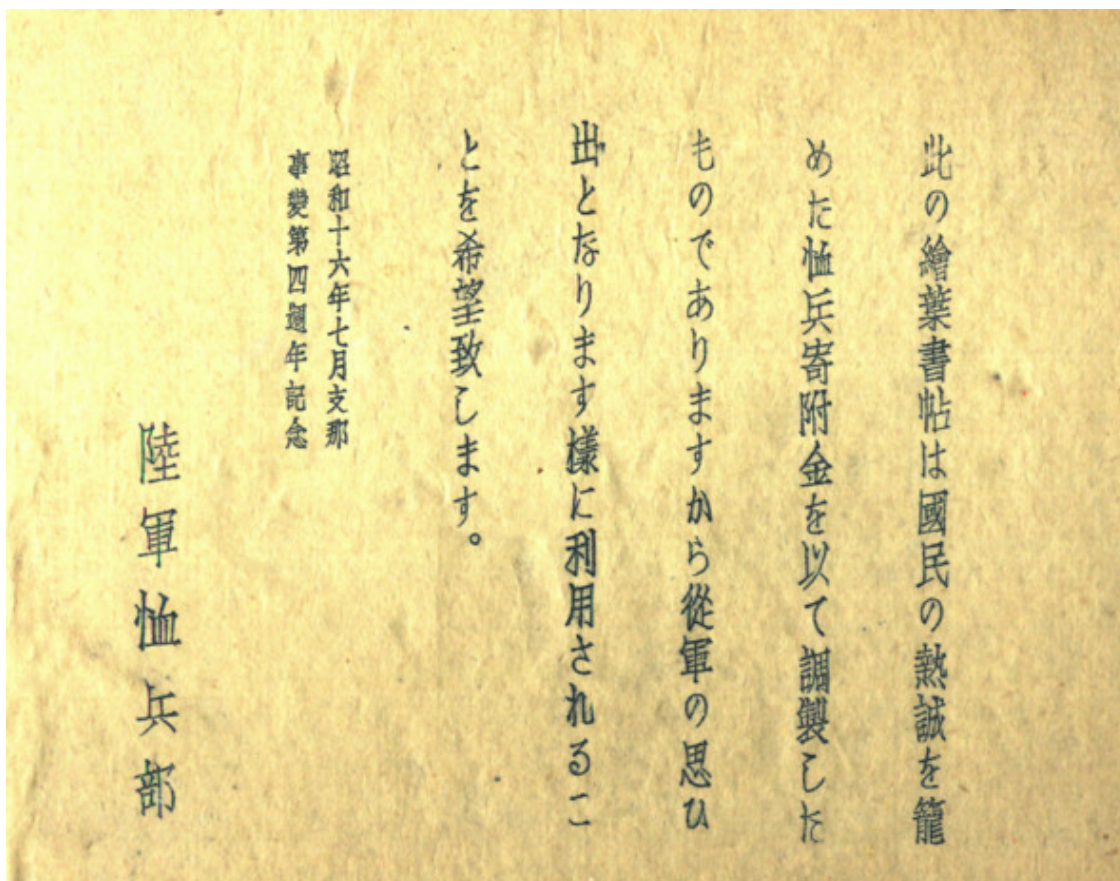 此の繪葉書帖は國民の熱誠を籠
めた恤兵寄附金を以て調製した
ものでありますから從軍の思ひ
出となります樣に利用されるこ
とを希望致します。
昭和十六年七月支那
事變第四週年記念
陸軍恤兵部